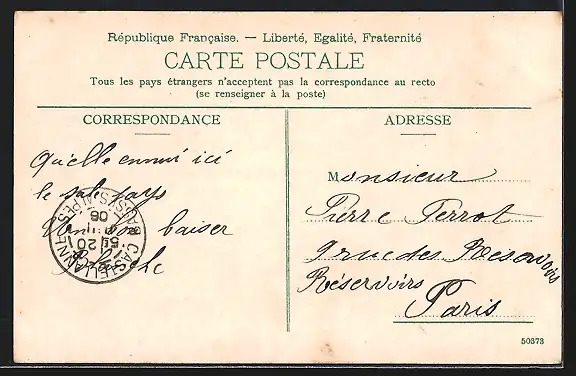 République Française. — Liberté, Egalité, Fraternité
CARTE POSTALE
Tous les pays étrangers n'acceptent pas la correspondance au recto
(se renseigner à la poste)
CORRESPONDANCE
Quelle ennui ici
le sale pays
Un bon baiser
CASTELLANNE
BASSES ALPES
20
06
ADRESSE
Monsieur
Pierre Perrot
rue des
Réservoirs
Paris
50373